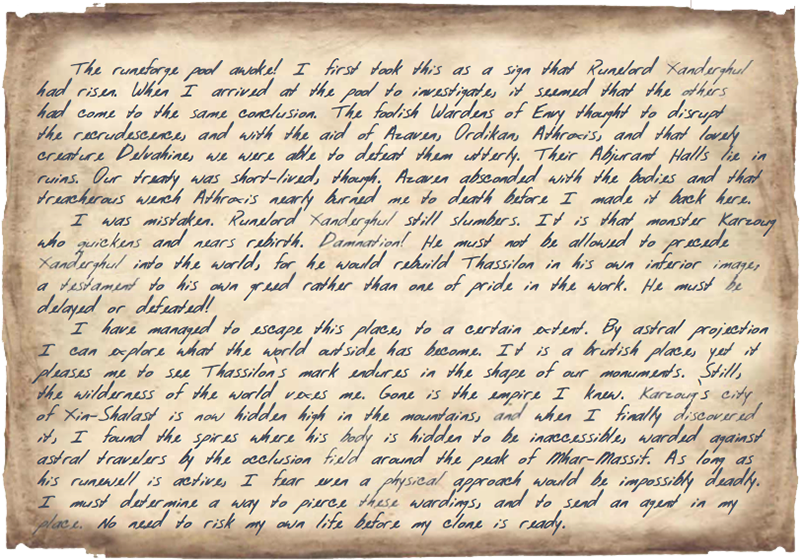 The runeforge pool awoke! I first took this as a sign that Runelord Xanderghul
had risen. When I arrived at the pool to investigate, it seemed that the others
had come to the same conclusion. The foolish Wardens of Envy thought to disrupt
the recrudescence, and with the aid of Azaven, Ordikan, Athroxis, and that lovely
creature Delvahine, we were able to defeat them utterly. Their Abjurant Halls lie in
ruins. Our treaty was short-lived, though. Azaven absconded with the bodies and that
treacherous wench Athroxis nearly burned me to death before I made it back here.
I was mistaken. Runelord Xanderghul still slumbers. It is that monster Karzoug
who quickens and nears rebirth. Damnation! He must not be allowed to precede
Xanderghul into the world, for he would rebuild Thassilon in his own inferior image,
a testament to his own greed rather than one of pride in the work. He must be
delayed or defeated!
I have managed to escape this place, to a certain extent. By astral projection
I can explore what the world outside has become. It is a brutish place, yet it
pleases me to see Thassilon's mark endures in the shape of our monuments. Still,
the wilderness of the world vexes me. Gone is the empire I knew. Karzoug's city
of Xin-Shalast is now hidden high in the mountains, and when I finally discovered
it, I found the spires where his body is hidden to be inaccessible, warded against
astral travelers by the occlusion field around the peak of Mhar-Massif. As long as
his runewell is active, I fear even a physical approach would be impossibly deadly.
I must determine a way to pierce these wardings, and to send an agent in my
place. No need to risk my own life before my clone is ready.